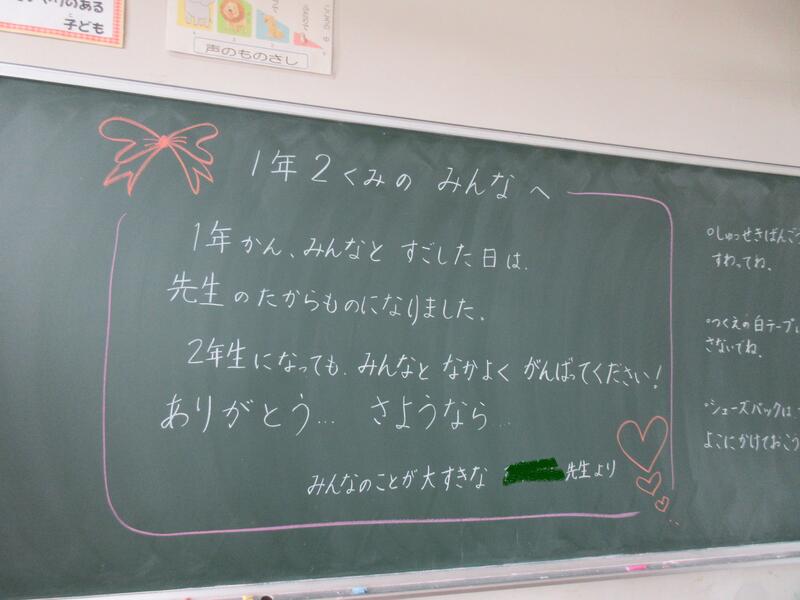 のある
子ども
声のものさし
1年2くみの みんなへ
1年かん、みんなと すごした日は、
先生のたからものになりました。
2年生になっても、みんなと なかよく がんばってください!
ありがとう… さようなら…
みんなのことが大すきな 先生より
・しゅっせきばんご
すわってね、
・つくえの白テープ
さないでね、
・シューズバックは
よこにかけておこう